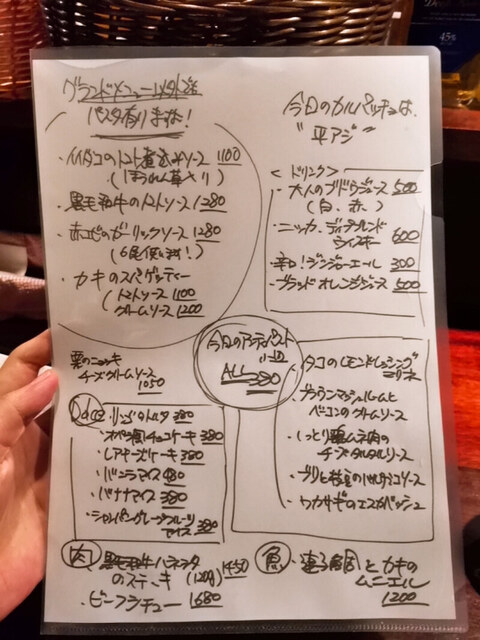 グランドメニュー以外に
パスタ有ります!
・イイダコのトマト煮込みソース 1100
(ほうれん草入り)
・黒毛和牛のトマトソース 1280
・赤エビのガーリックソース 1280
(6尾使います!)
・カキのスパゲッティー
(トマトソース 1100
クリームソース 1200
栗のニョッキ
チーズクリームソース
1050
今日のカルパッチョは、
"平アジ"
<ドリンク>
・大人のブドウジュース 500
(白、赤)
・ニッカ、ディープブレンド
ウイスキー 600
・辛口!ジンジャーエール 300
・ブラッドオレンジジュース 500
今日のアンティパスト
ALL 380
・タコのレモンドレッシング
マリネ
・ブラウンマッシュルームと
ベーコンのクリームソース
・しっとり鶏ムネ肉の
チーズタルタルソース
・ワカサギのエスカベッシュ
Dolce
・オペラ風チョコケーキ 380
・レアチーズケーキ 380
・バニラアイス 480
・バナナアイス 380
・シャンパングレープフルーツ
アイス 380
肉
・黒毛和牛ハネシタ
のステーキ (120g) 1450
・ビーフシチュー 1680
魚
とカキの
ムニエル
1200